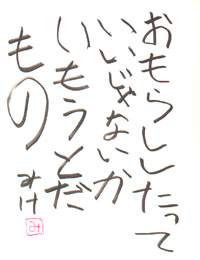 おもらししたって
いいじゃないか
いもうとだ
もの
みけ
み